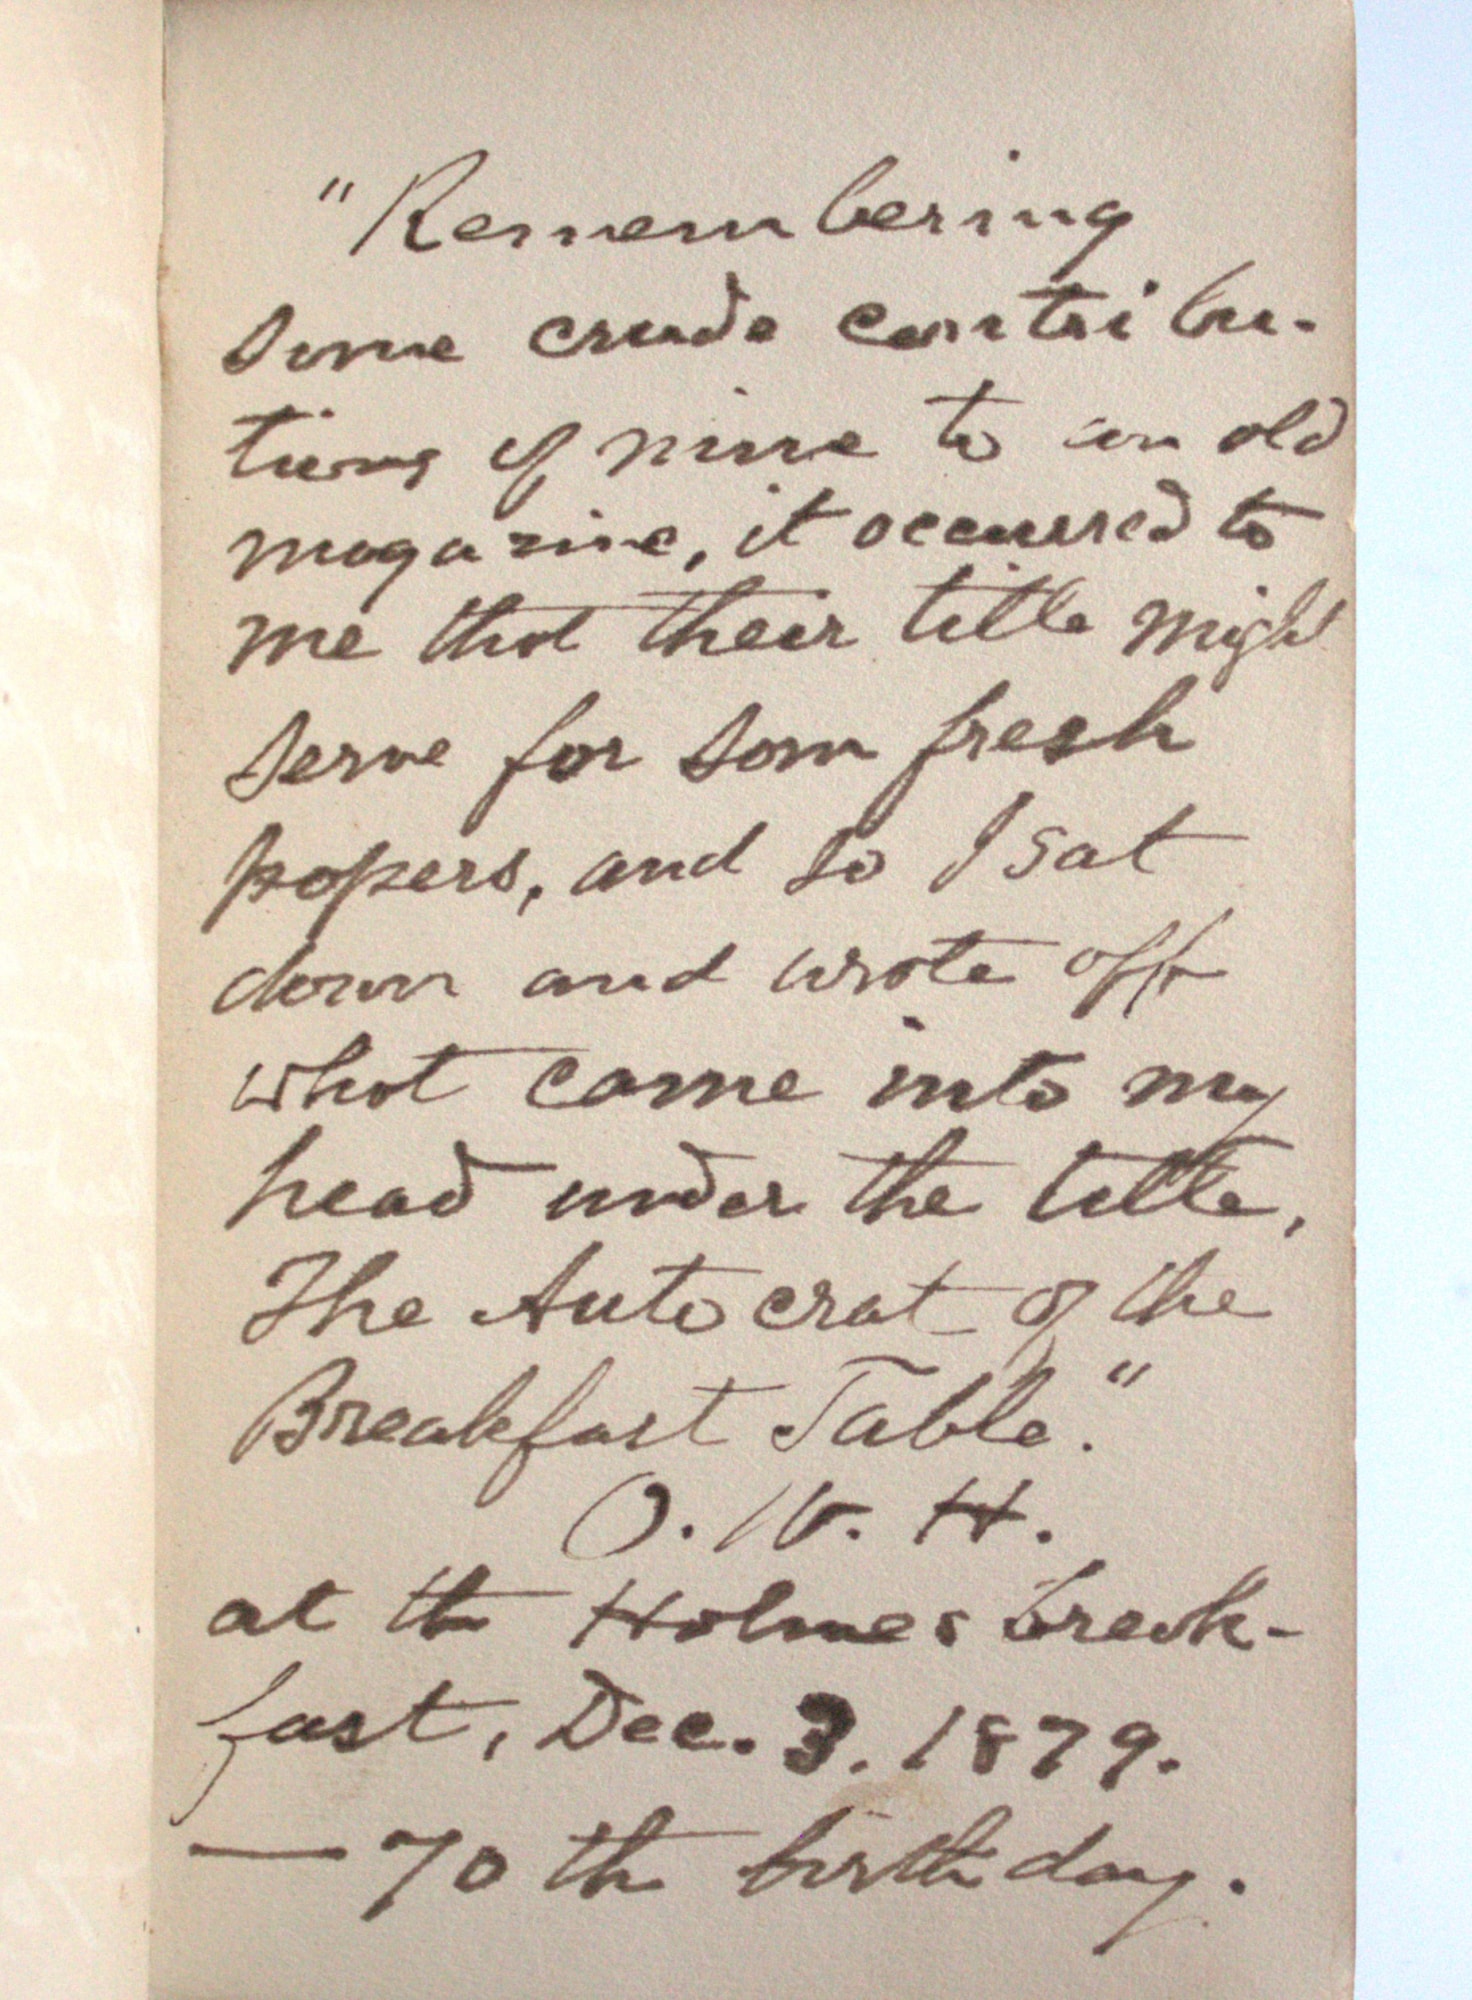 "Remembering
some crude contribu-
tions of mine to an old
magazine, it occurred to
me that their title might
serve for some fresh
papers, and so I sat
down and wrote off
what came into my
head under the title,
The Autocrat of the
Breakfast Table."
O. W. H.
at the Holmes break-
fast, Dec. 3. 1879.
— 70th birthday.